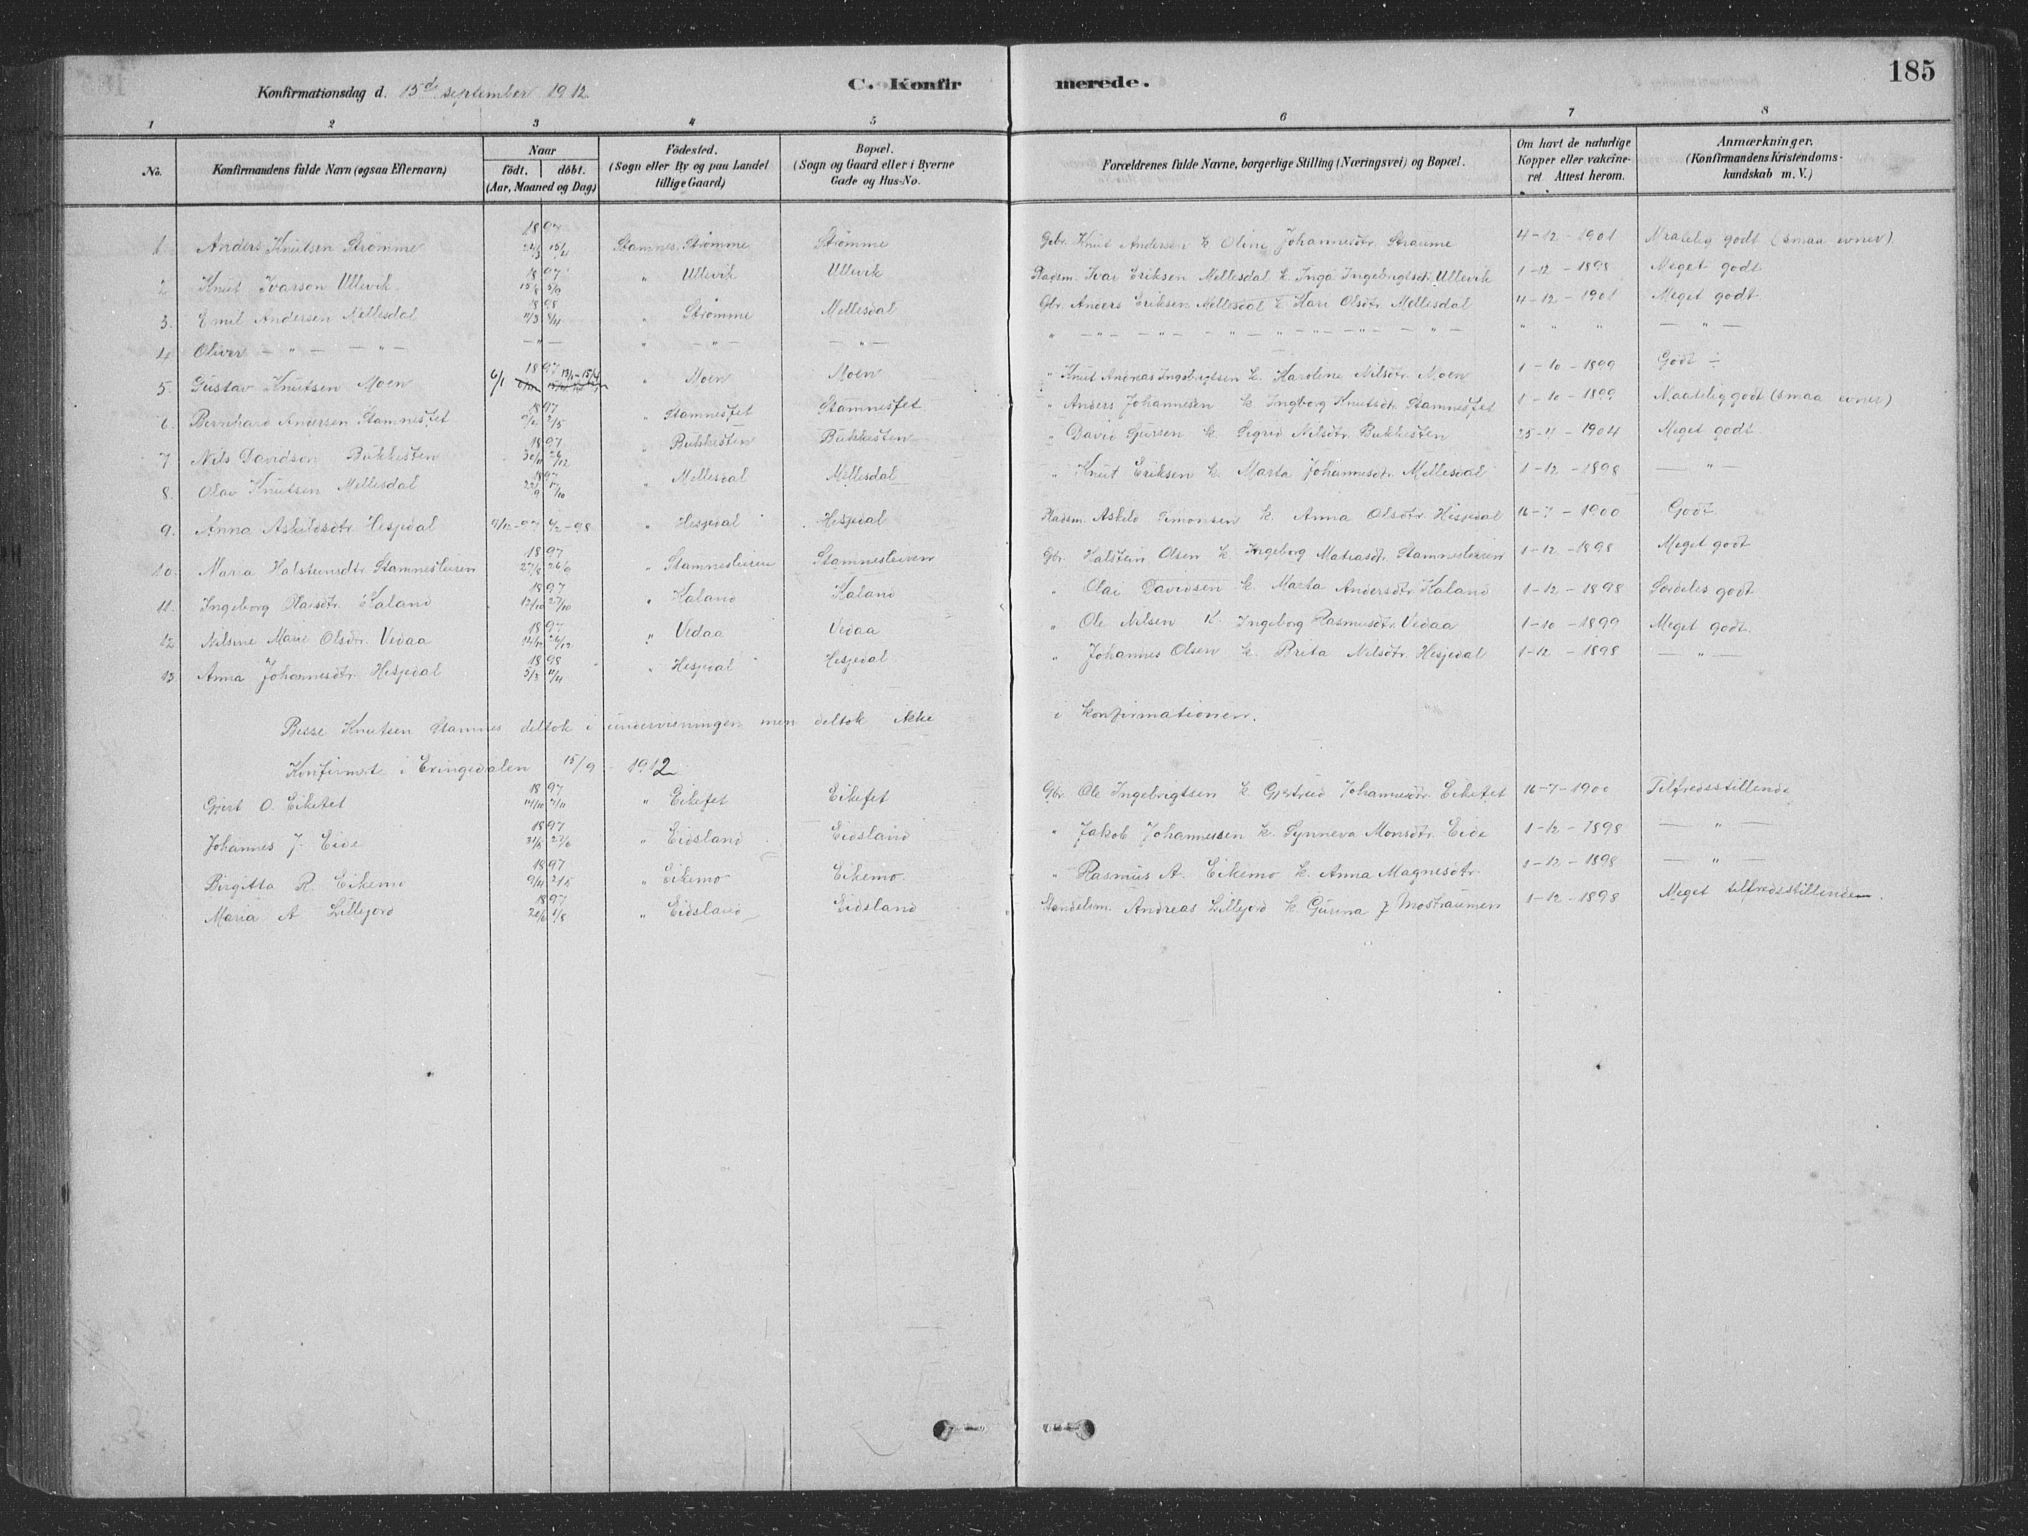 185
Konfirmationsdag d. 15d september 1912 C. Konfir merede.
1 2 3 4 5 6 7 8
No. Konfirmandens fulde Navn (ogsaa Efternavn) Naar Födt. döbt. (Aar, Maaned og Dag) Födested. (Sogn eller By og paa Landet tillige Gaard) Bopæl. (Sogn og Gaard eller i Byerne Gade og Hus-No. Forældrenes fulde Navne, borgerlige Stilling (Næringsvei) og Bopæl. Om havt de naturlige Kopper eller vakcineret Attest herom. Anmærkninger. (Konfirmandens Kristendomskundskab m. V.)
1 Anders Knutsen Strømme 1897 24/3 15/4 Stamnes, Strømme Strømme Gbr. Knut Andersen k Oline Johannesdtr. Straume 4-12-1901 Maatelig godt (smaa evner)
2 Knut Ivarson Ullevik 1897 15/8 5/9 " Ullevik Ullevik Pladsm. Ivar Eriksen Mellesdal k Inga Ingebrigtsdt. Ullevik 1-12-1898 Meget godt
3. Emil Andersen Mellesdal 1898 " Strømme Mellesdal Gbr. Anders Eriksen Mellesdal k Kari Olsdtr. Mellesdal 4-12-1901 Meget godt
4 Oliver — " — — " — — " — " — " — — " — " — " — — " — " — " — " " " — " —
5. Gustav Knutsen Moen 6/1 1897 13/1-15/4 " Moen Moen " Knut Andreas Ingebrigtsen k. Karoline Nilsdtr. Moen 1-10-1899 Godt ÷
6. Bernhard Andersen Stamnesfet 1897 2/5 " Stamnesfet Stamnesfet " Anders Johannesen k Ingborg Knutsdtr. Stamnesfet 1-10-1899 Maatelig godt (smaa evner)
7 Nils Davidson Bukkesten 1897 30/11 26/12 " Bukkesten Bukkesten " David Sjursen k. Sigrid Nilsdtr. Bukkesten 25-11-1904 Meget godt
8. Olav Knutsen Mellesdal 1897 22/9 17/10 " Mellesdal Mellesdal " Knut Eriksen k Marta Johannesdtr. Mellesdal 1-12-1898 — " —
9. Anna Askildsdtr Hesjedal 9/12-97 6/2-98 " Hesjedal Hesjedal Pladsm. Askild Simonsen k. Anna Olsdtr. Hesjedal 16-7-1900 Godt
10. Maria Halsteinsdtr Stamnesleiren 1897 27/8 26/9 " Stamnesleiren Stamnesleiren Gbr. Halstein Olsen k Ingeborg Matiasdtr. Stamnesleiren 1-12-1898 Meget godt
11. Ingeborg Olaisdtr. Kaland 1897 12/10 27/10 " Kaland Kaland " Olai Davidsen k. Marta Andersdtr. Kaland 1-12-1898 Særdeles godt
12 Nilsine Marie Olsdtr. Vedaa 1897 14/11 26/12 " Vedaa Vedaa " Ole Nilsen k. Ingeborg Rasmusdtr. Vedaa 1-10-1899 Meget godt.
13 Anna Johannesdtr. Hesjedal 1898 5/3 11/4 " Hesjedal Hesjedal " Johannes Olsen k Brita Nilsdtr. Hesjedal 1-12-1898 — " —
Besse Knutsen Stamnes deltok i undervisningen men deltok ikke i konfirmationen.
Konfirmerte i Eksingedalen 15/9 1912
Gjert O. Eikefet 1897 14/10 7/11 " Eikefet Eikefet Gbr. Ole Ingebrigtsen k Gjertrud Johannesdtr. Eikefet 16-7-1900 Tilfredsstillende
Johannes J. Eide 1897 31/5 27/6 " Eidsland Eidsland " Jakob Johannessen k. Synneva Monsdtr. Eide 1-12-1898 — " —
Birgitta R. Eikemo 1897 9/4 2/5 " Eikemo Eikemo. " Rasmus A. Eikemo k. Anna Magnesdtr. 1-12-1898 — " —
Maria A Lillejord 1897 20/6 1/8 " Eidsland Eidsland Handelsm. Andreas Lillejord k Gurina J Mostraumen 1-12-1898 Meget tilfredsstillende.